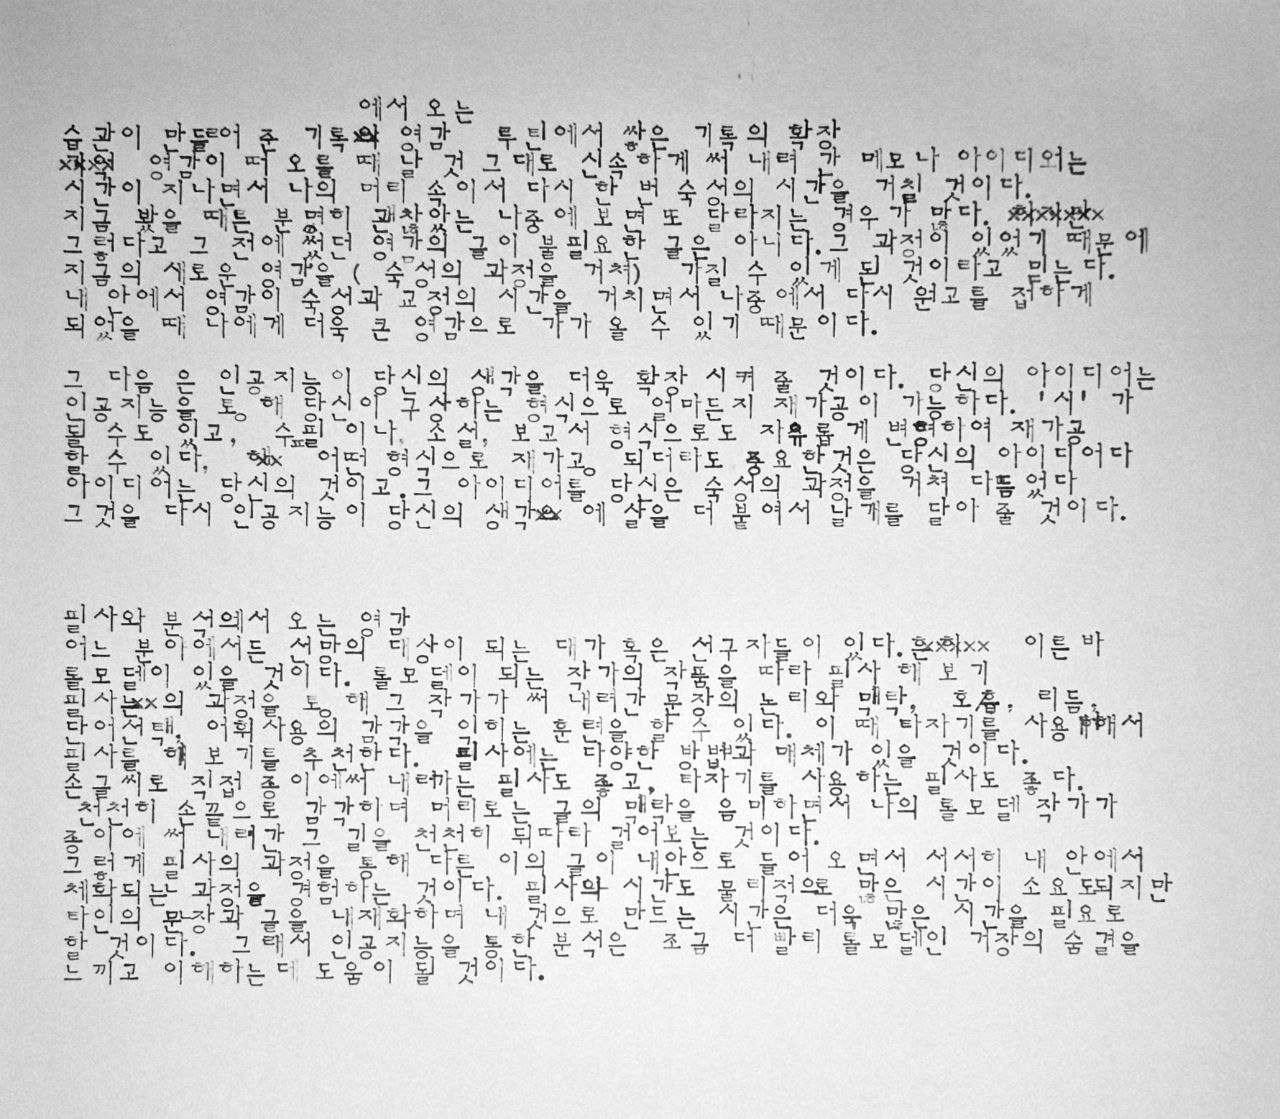 에서 오는
습관이 만들어 준 기록의 영감 루틴에서 쌓은 기록의 확장
영감이 떠 오를 때 날 것 그대로 신속하게 써 내려 간 메모나 아이디어는
시간이 지나면서 나의 머리 속에서 다시 한 번 숙성의 시간을 거칠 것이다.
지금 봤을 때는 분명히 괜찮았는 나중에 보면 또 달라지는 경우가 많다.
그렇다고 그 전에 썼던 영감의 글이 불필요한 글은 아니다.그 과정이 있었기 때문에
지금의 새로운 영감을 ( 숙성의 과정을 거쳐) 가질 수 있게 된 것이라고 믿는다.
내 안에서 영감이 숙성과 교정의 시간을 거치면서 나중에서 다시 원고를 접하게
되었을 때 나에게 더욱 큰 영감으로 다가 올 수 있기 때문이다.
그 다음 은 인공지능이 당신의 생각을 더욱 확장 시켜 줄 것이다. 당신의 아이디어는
인공지능을 통해 당신이 구상하는 형식으로 얼마든지 재가공이 가능하다. '시' 가
될 수도 있고, 수필이나, 소설, 보고서 형식으로도 자유롭게 변형하여 재가공
할 수 있다, 어떤 형식으로 재가공 되더라도 중요한것은 당신의 아이디어다
아이디어는 당신의 것이고.그 아이디어를 당신은 숙성의 과정을 거쳐 다듬었다
그것을 다시 인공지능이 당신의 생각 에 살을 더 붙여서 날개를 달아 줄 것이다.
필사와 분석에서 오는 영감
어느 분야에서든 선망의 대상이 되는 대가 혹은 선구자들이 있다. 이른바
롤모델이 있을 것이다. 롤모델이 되는 작가의 작품을 따라 필사해 보기
필사는xx의 과정을 통해 그 작가가 써 내려간 문장의 논리와 맥락, 호흡, 리듬,
단어선택, 어휘사용의 감각을 익히는 훈련을 할 수 있다. 이 때 타자기를 사용해서
필사를 해 보기를 추천하다. 필사에는 다양한 방법과 매체가 있을 것이다.
손글씨로 직접 종이에써 내려가는 필사도 좋고, 타자기를 사용하는 필사도 좋다.
천천히 손끝으로 감각하며 머리로는 글의 맥락을 음미하면서 나의 롤모델 작가가
종이에 써 내려간 그 길을 천천히 뒤따라 걸어보는 것이다.
그렇게 필사의 과정을 통해 다른 이의 글이 내안으로 들어 오면서 서서히 내 안에서
체화되는 과정을 경험하는 것이다. 필사의 시간도 물리적으로 많은 시간이 소요되지만
타인의 문장과 글을 내재화하며 내 것으로 만드는 시간은 더욱 많은 시간을 필요로
할 것이다. 그래서 인공지능을 통한 분석은 조금 더 빨리 롤모델인 거장의 숨결을
느끼고 이해하는데 도움이 될 것이다.